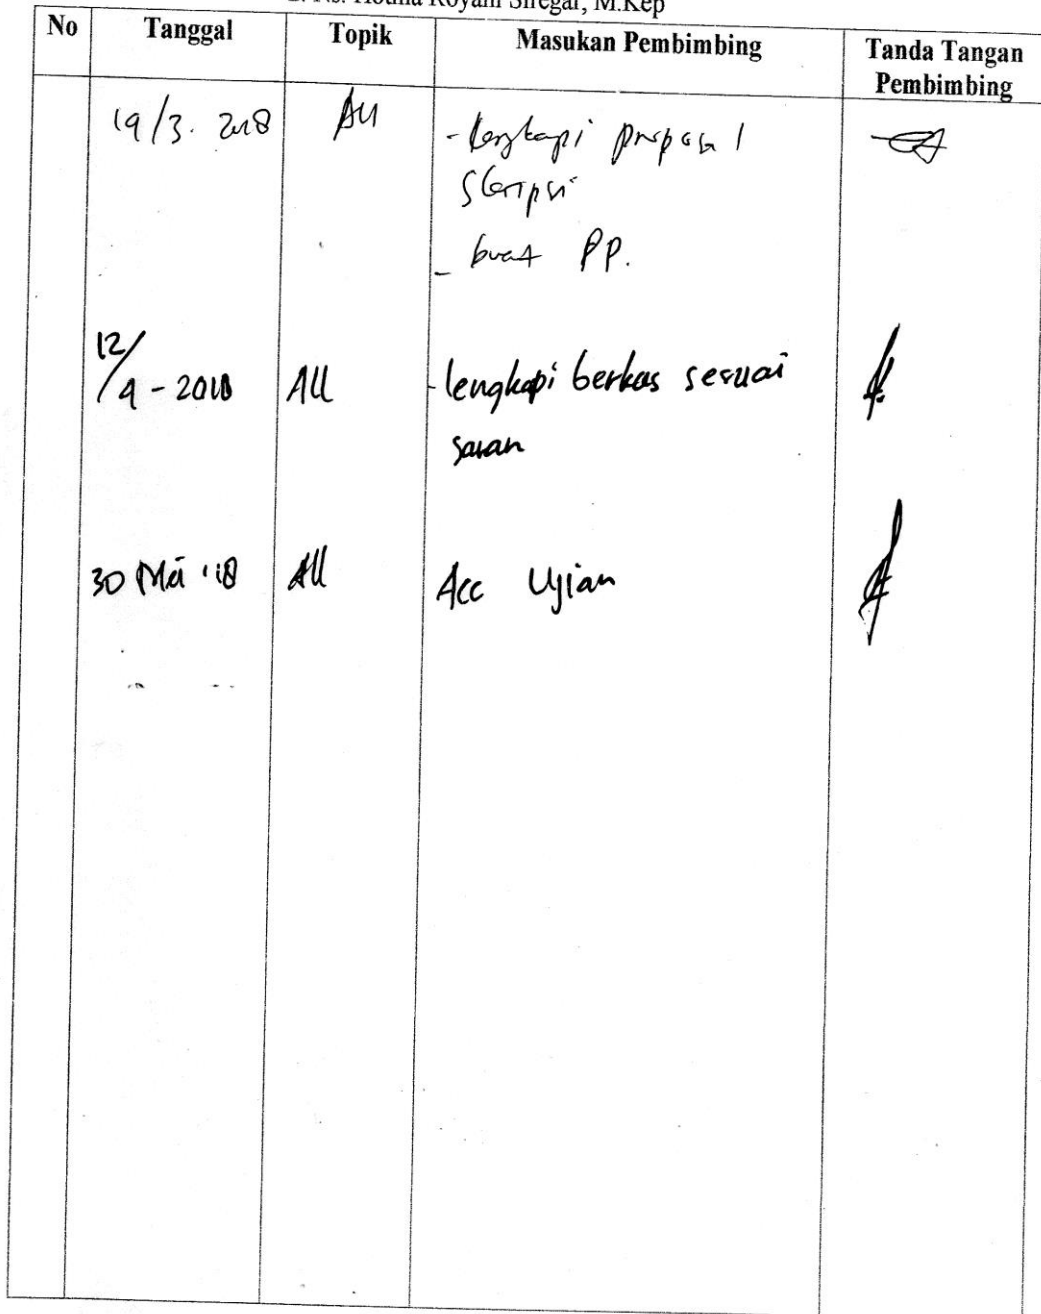 Royani Siregar, M.Kep
No Tanggal Topik Masukan Pembimbing Tanda Tangan Pembimbing
19/3. 2018 All - lengkapi proposal
skripsi
- buat PP.
12/4 - 2018 All - lengkapi berkas sesuai
saran
30 Mei '18 All Acc Ujian